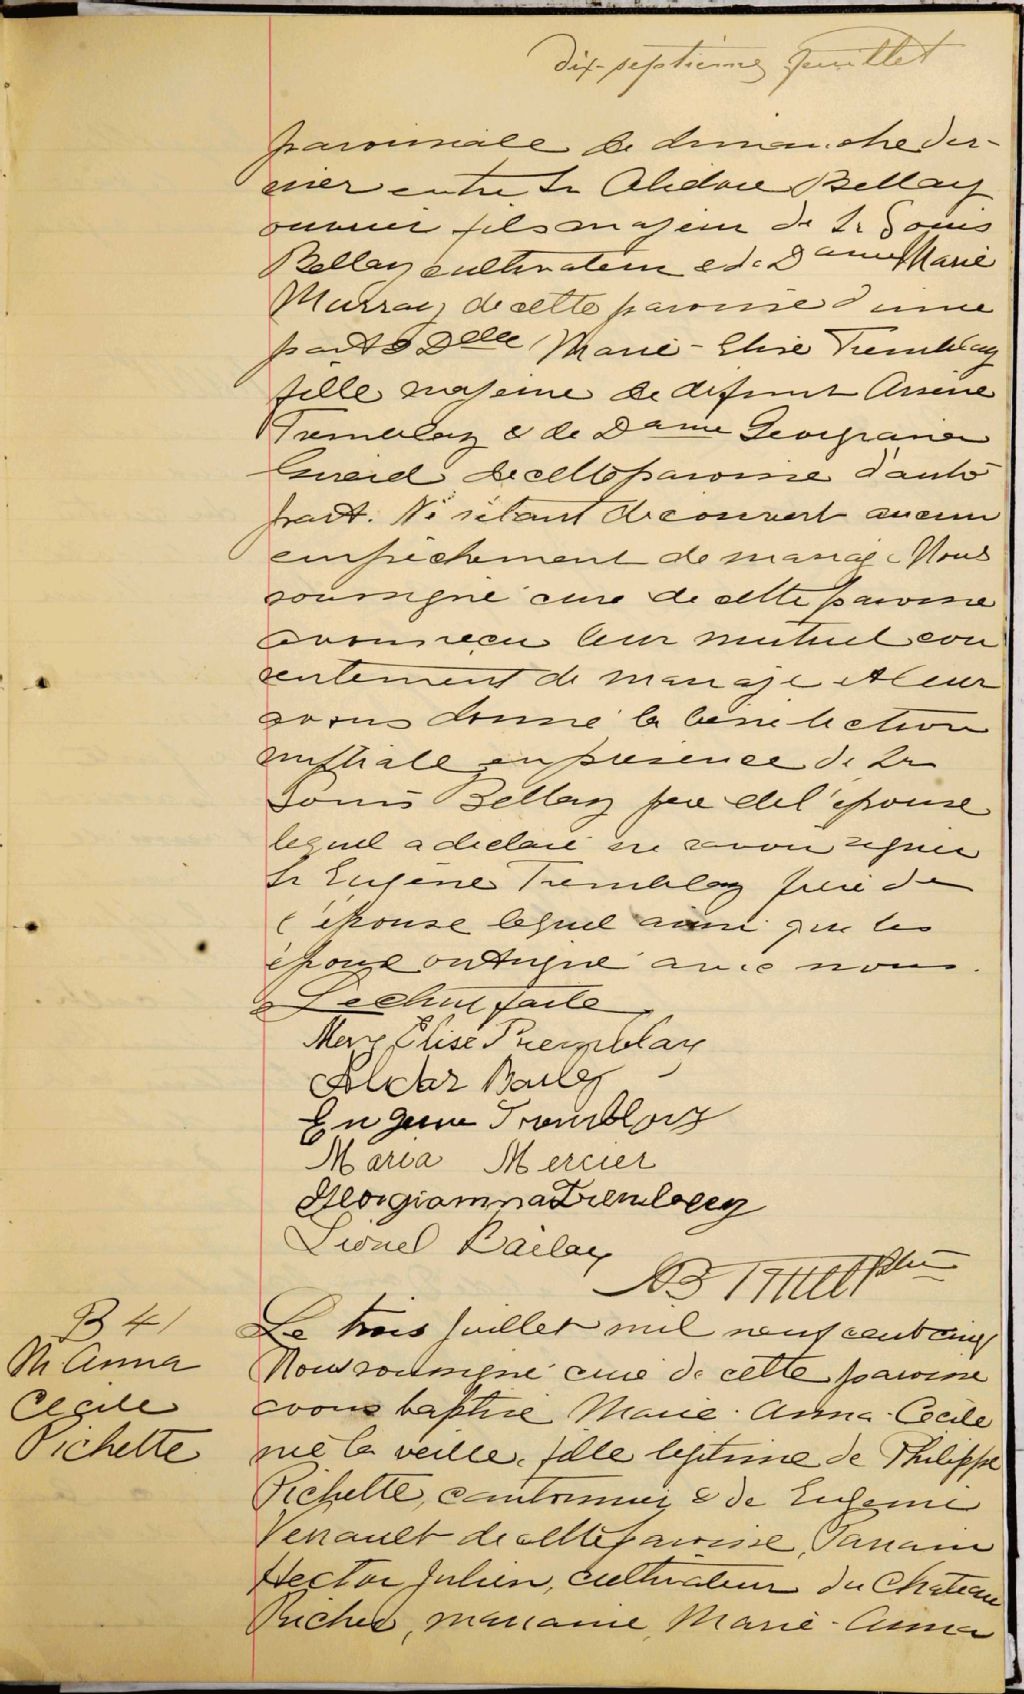 dix-septième feuillet
paroissiale de dimanche der-
nier entre Sr Alidore Bellay
ouvrier fils majeur de Sr Louis
Bellay cultivateur & de Dame Marie
Murray de cette paroisse d'une
part & Delle Marie-Elise Tremblay
fille majeure de défunt Arsène
Tremblay & de Dame Georgianna
de cette paroisse d'autre
part. Ne s'étant découvert aucun
empêchement de mariage Nous
soussigné curé de cette paroisse
avons reçu leur mutuel con
sentement de mariage et leur
avons donné la bénédiction
nuptiale en présence de Sr
Louis Bellay père de l'épouse
lequel a déclaré ne savoir signer
Sr Eugène Tremblay frère de
l'épouse lequel ainsi que les
époux ont signé avec nous.
Lecture faite
Mary Elise Tremblay
Alidor Bailey
Eugene Tremblay
Maria Mercier
Georgianna Tremblay
Lionel Bailey
Ptre
B 41
M Anna
Cécile
Pichette
Le trois Juillet mil neuf cent cinq
Nous soussigné curé de cette paroisse
avons baptisé Marie-Anna-Cécile
née la veille, fille légitime de Philippe
Pichette, cantonnier & de Eugenie
Verrault de cette paroisse, Parrain
Hector Julien, cultivateur du Chateau
Richer, marraine, Marie-Anna